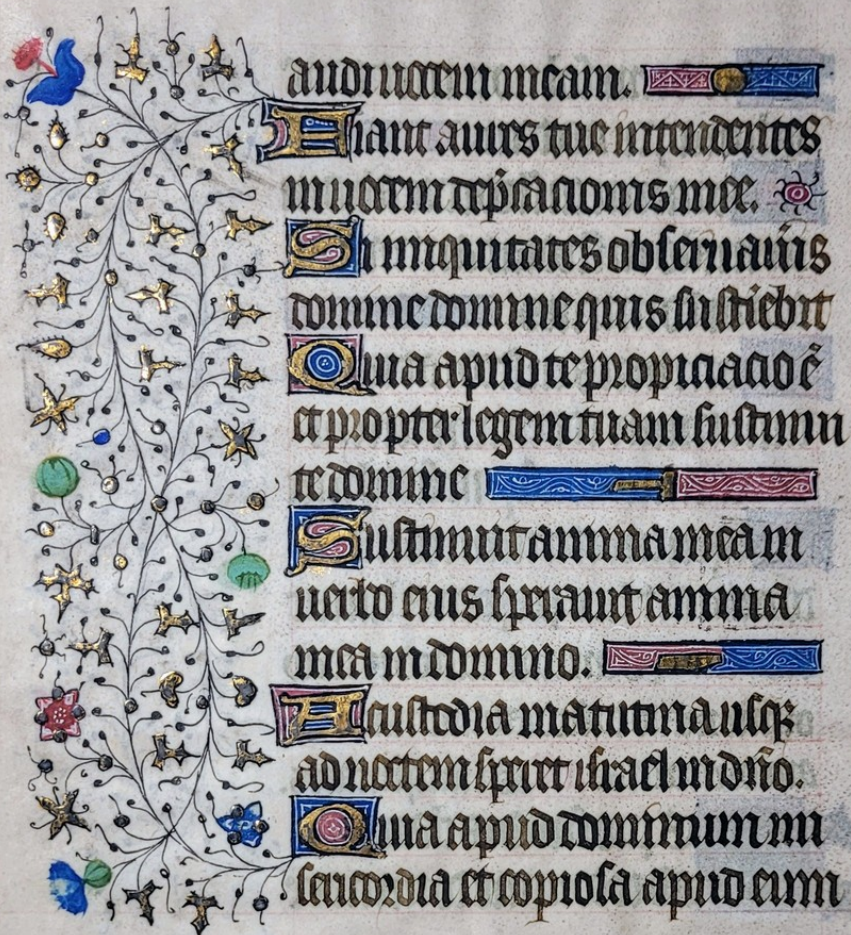 audi uocem meam.
Fiant aures tue intendentes
in uocem dep̄cacionis mee.
Si iniquitates obseruaūis
domine domine quis sustīebit
Quia apud te propiciacio ē
et propter legem tuam sustinui
te domine
Sustinuit anima mea in
uerbo eius sperauit anima
mea in domino.
A custodia matutina usqꝫ
ad noctem speret israel in dn̄o.
Quia apud dominum mi
sericordia et copiosa apud eum